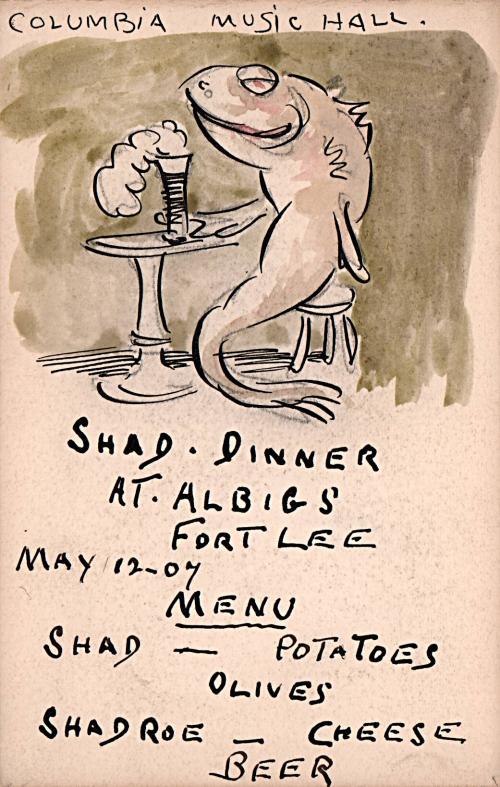 COLUMBIA MUSIC HALL.
SHAD. DINNER
AT. ALBIGS
FORT LEE
MAY 12-07
MENU
SHAD — POTATOES
OLIVES
SHAD ROE — CHEESE
BEER